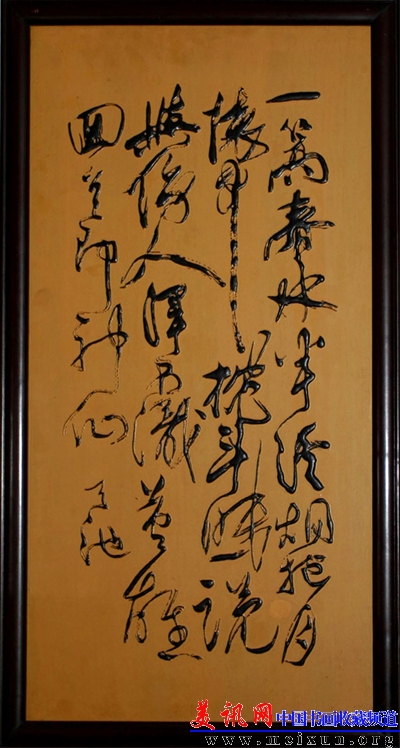 一篙春水半溪烟抱月
懷中枕斗眠説
與傍人渾不識英雄
回首即神仙 天池
美讯网 中国书画收藏频道
www.meixun.org